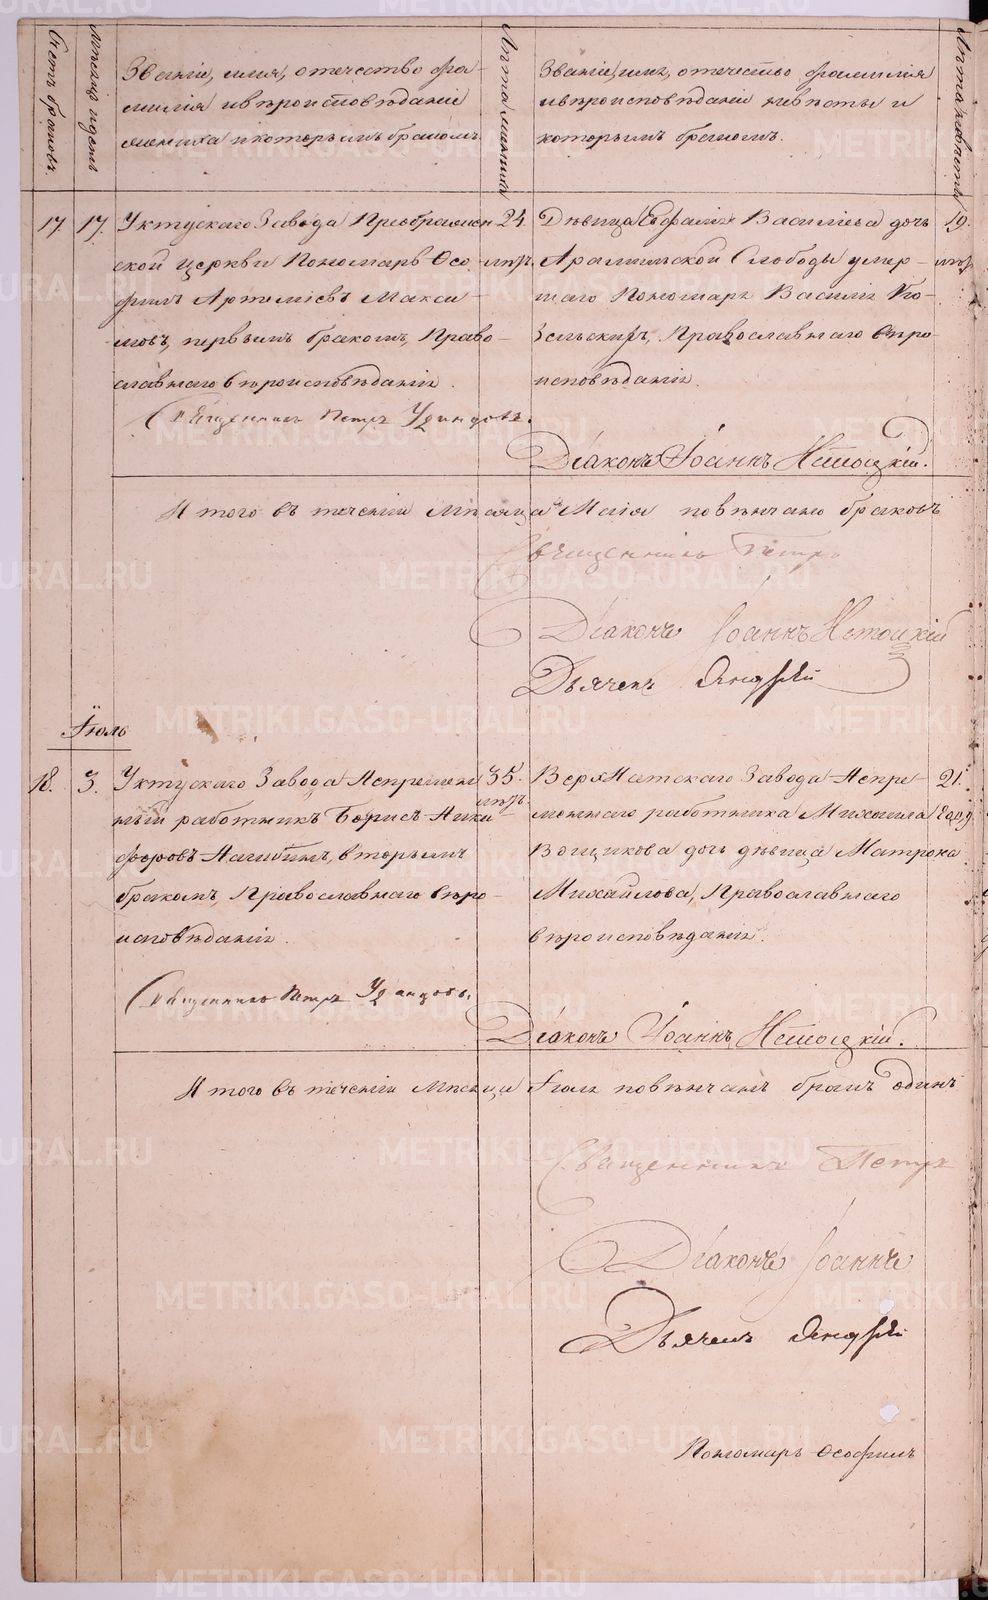 Счетъ браковъ.
Мѣсяцъ и день
Званіе, имя, отечество фа-
милія и вѣроисповѣданіе
жениха и которымъ бракомъ.
Лѣта жениха
Званіе, имя, отечество фамилія
и вѣроисповѣданіе невѣсты и
которымъ бракомъ.
Лѣта невѣсты
17. 17.
Уктускаго Завода Преображен
ской церкви Пономарь Ѳео-
филъ Артеміевъ Макси-
мовъ, первымъ бракомъ, Право-
славнаго вѣроисповѣданія.
24.
Дѣвица Евфалія Васильева дочь
Арамильской Слободы умер-
шаго Пономаря Василія Ко-
зельскихъ, Православнаго вѣро
исповѣданія.
19.
Священникъ Петръ Удинцовъ.
Діаконъ Іоаннъ Нѣмоцкій.
Итого въ теченіи Мѣсяца Маія повѣнчано браковъ
Священникъ Петръ
Діаконъ Іоаннъ
Дьячекъ Андрей
Іюль
18. 3.
Уктускаго Завода Непремен
ный работникъ Борисъ Ники
форовъ Нагибинъ, вторымъ
бракомъ, Православнаго вѣро-
исповѣданія.
35.
Верхъ Исетскаго Завода Непре-
меннаго работника Михаила
дочь дѣвица Матрона
Михайлова, Православнаго
вѣроисповѣданія.
21.
Священникъ Петръ Удинцовъ.
Діаконъ Іоаннъ Нѣмоцкій.
Итого въ теченіи Мѣсяца Іюля повѣнчанъ бракъ одинъ
Священникъ Петръ
Діаконъ Іоаннъ
Дьячекъ Андрей
Пономарь Ѳеофилъ
METRIKI.GASO-URAL.RU